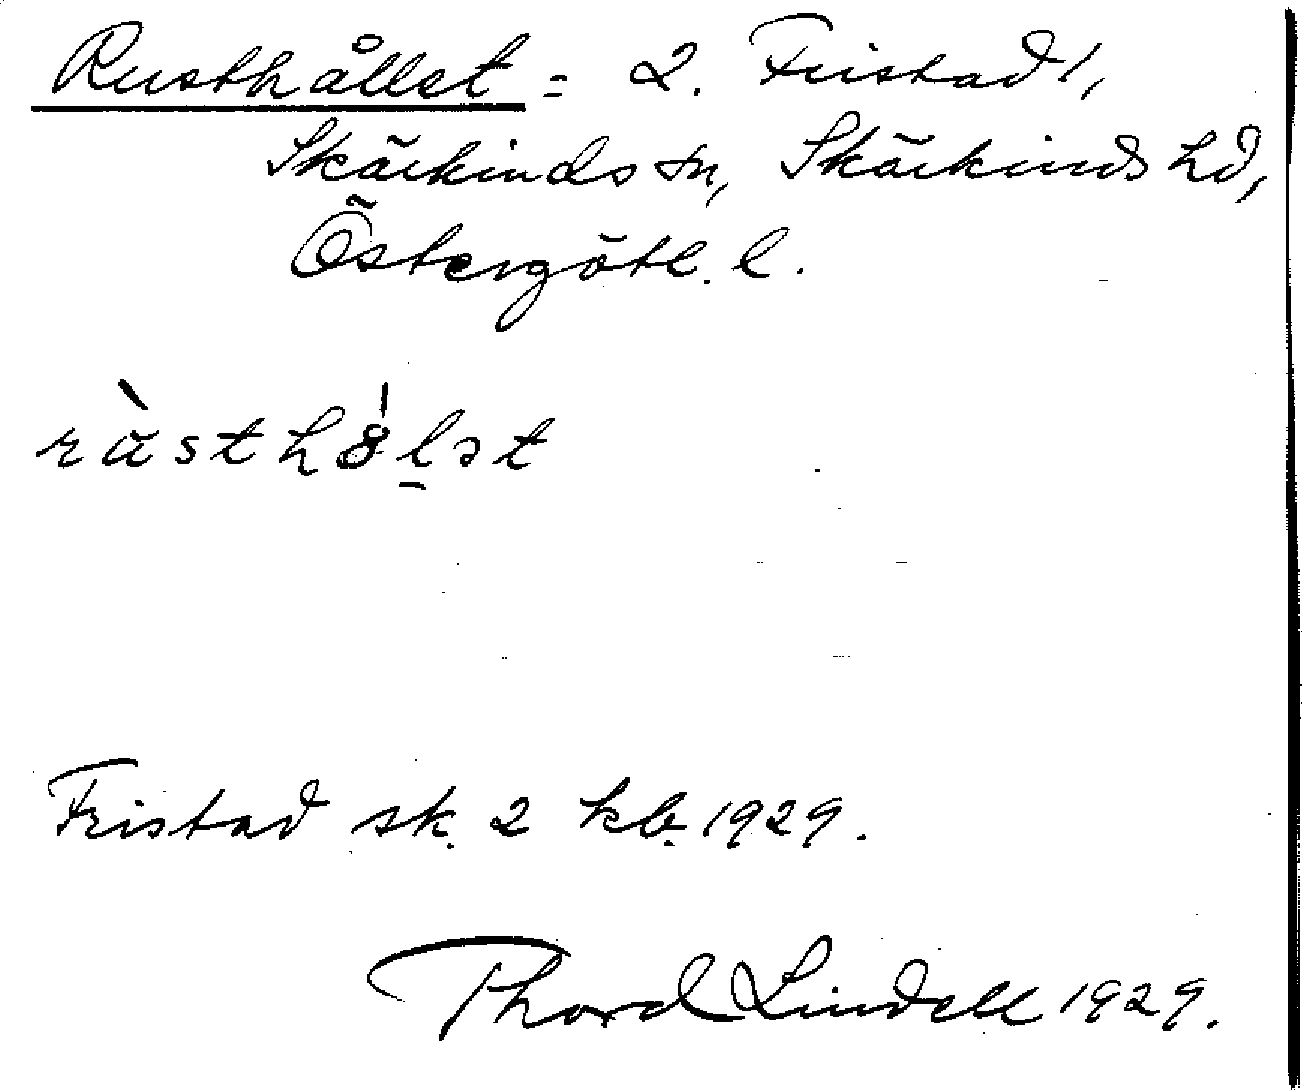 Rusthållet = 2. Fristad 1,
Skärkinds sn, Skärkinds hd,
Östergötl. l.
Fristad sk. 2 kb. 1929.
Thord Lindell 1929.